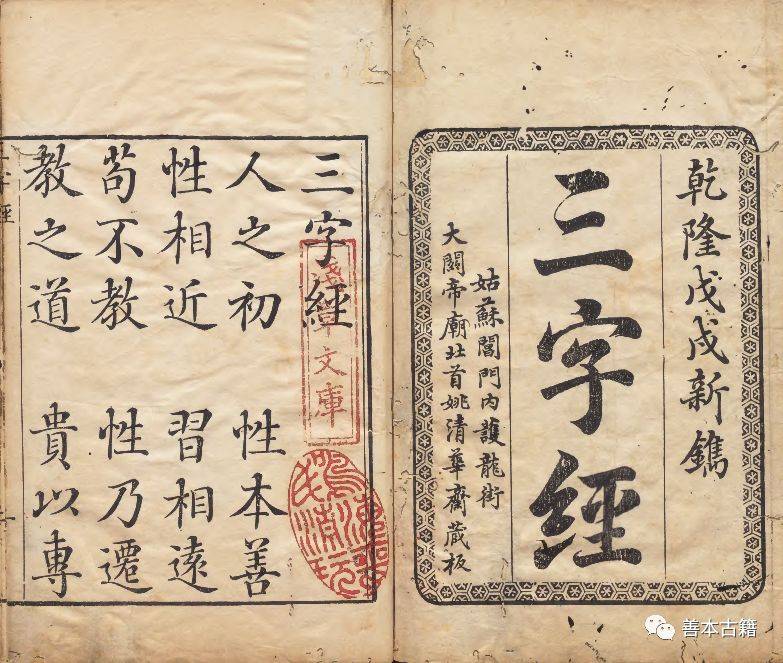 乾隆戊戌新鐫
三字經
姑蘇閶門內護龍街
大關帝廟北首姚清華齋藏板
三字經
淺草文庫
人之初 性本善
性相近 習相遠
苟不教 性乃遷
教之道 貴以專
善本古籍